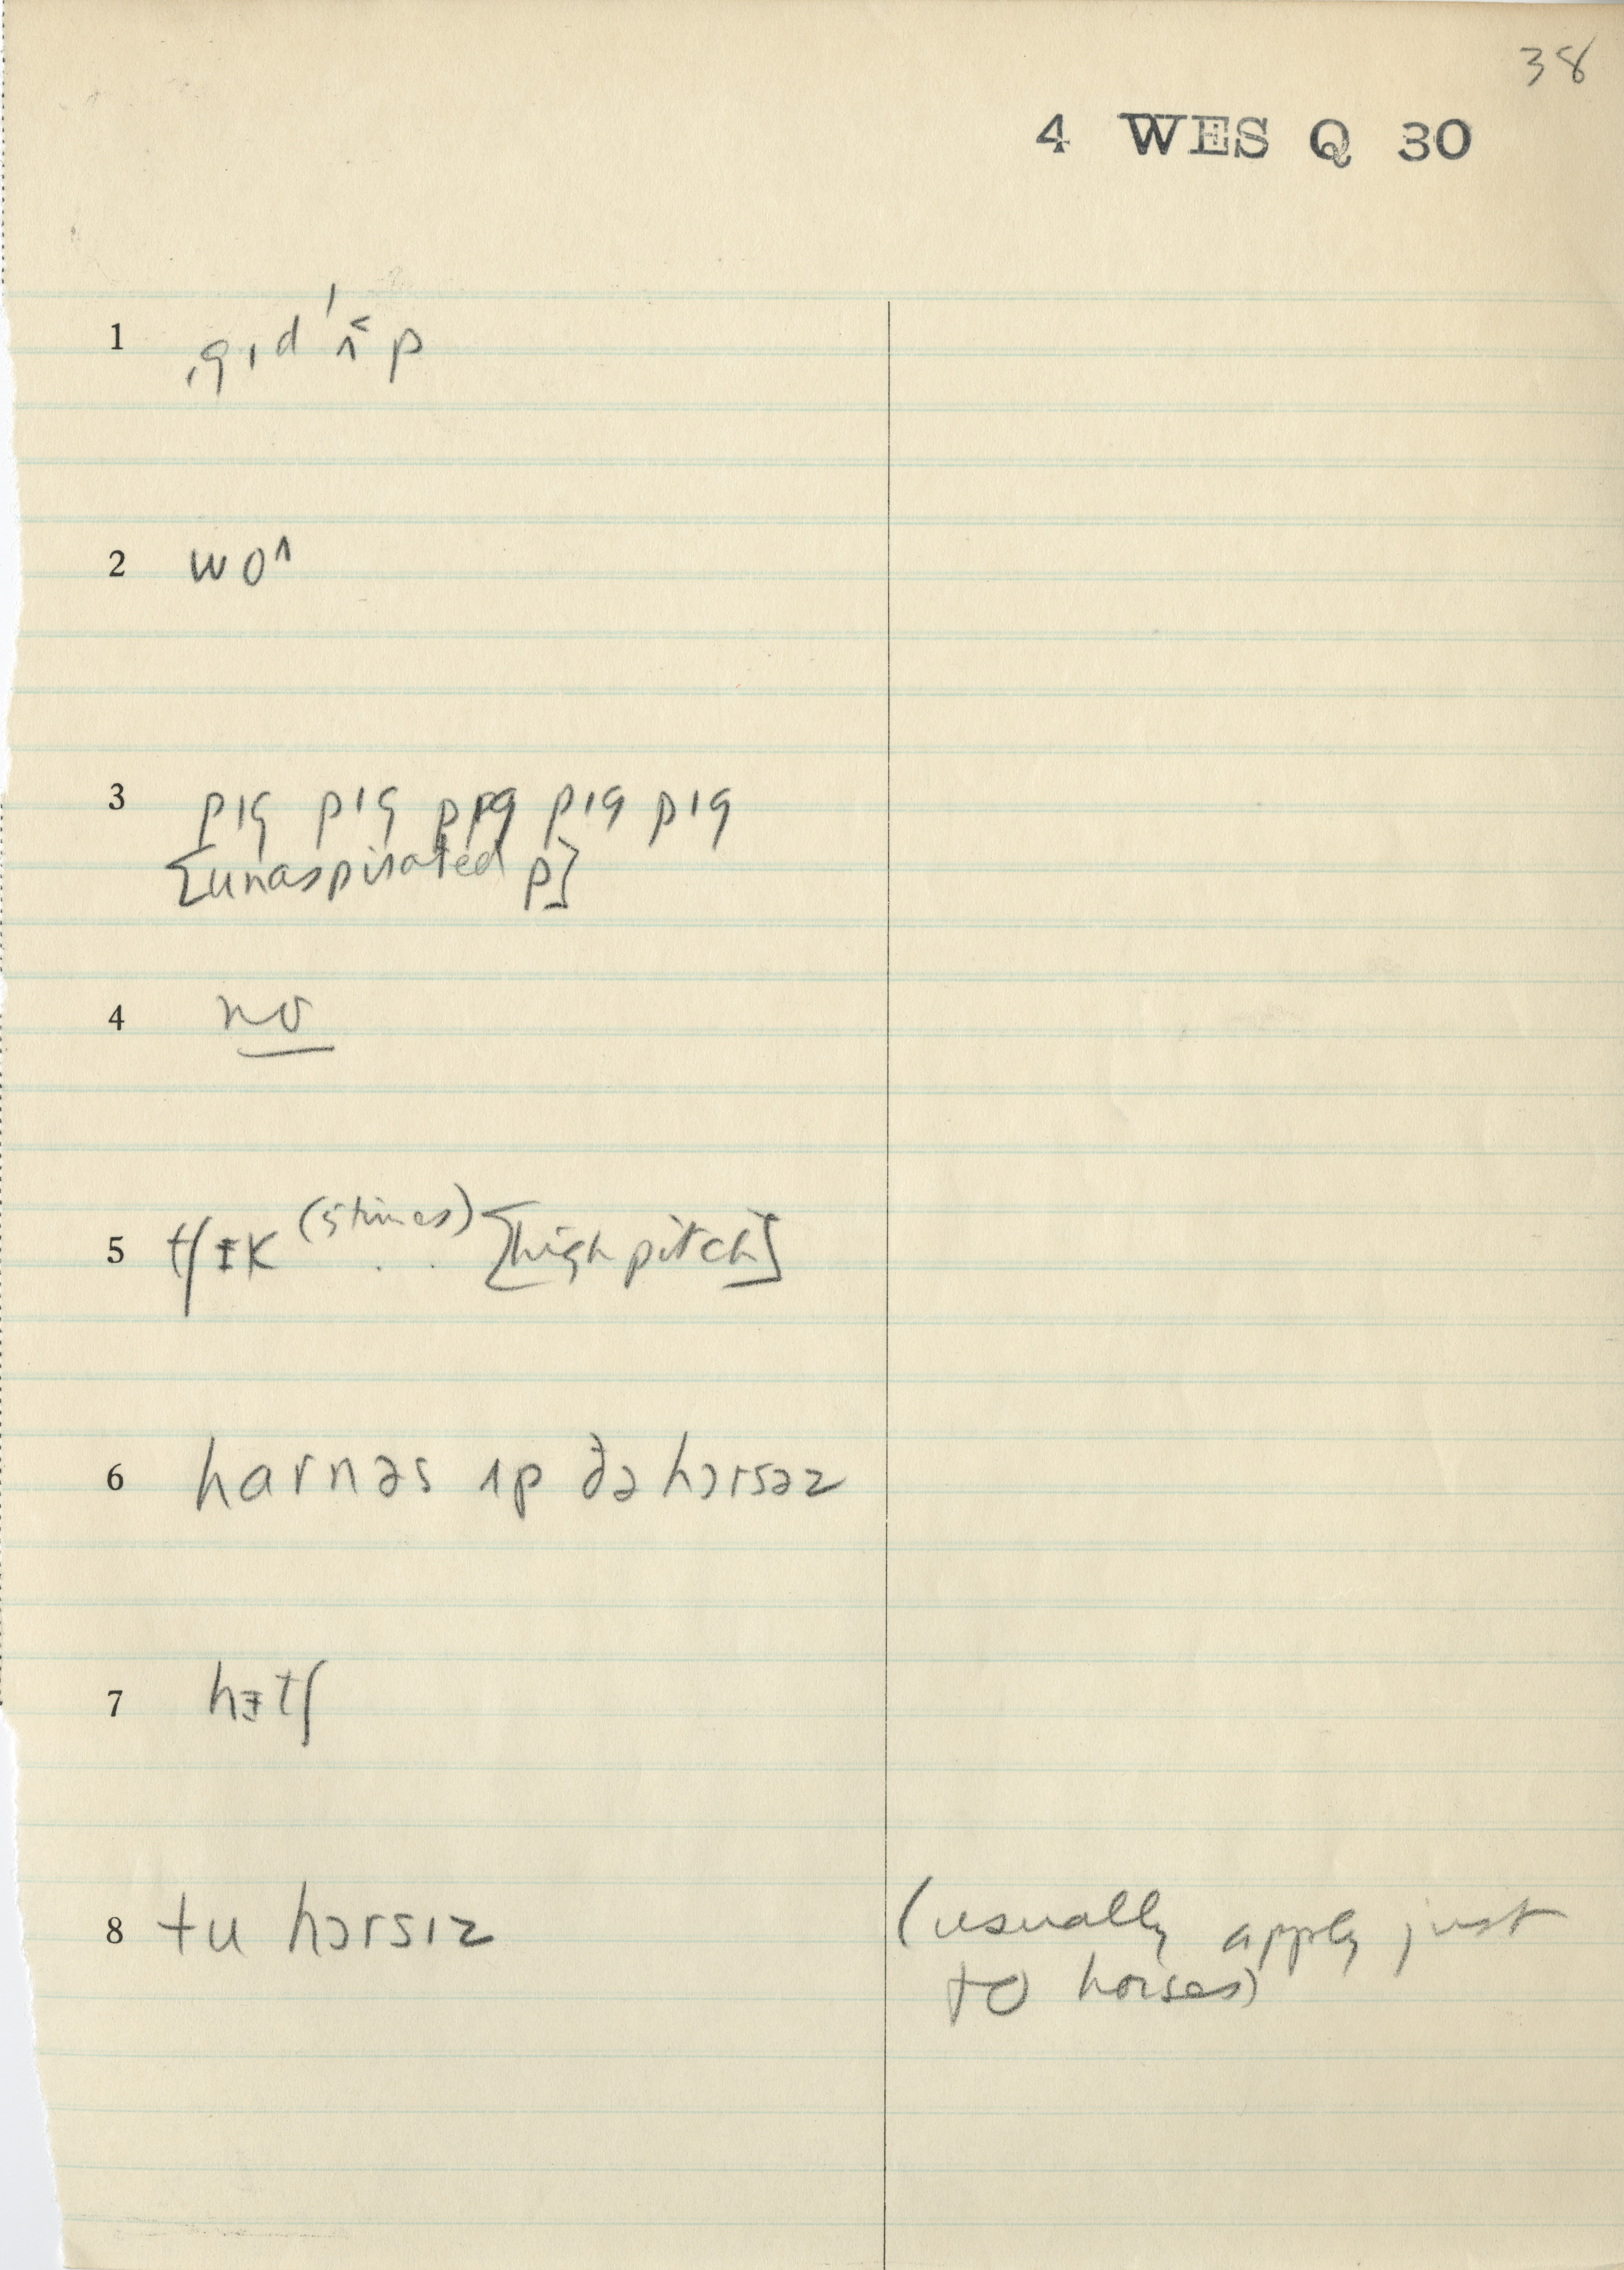 38
4 WES Q 30
1 ˌgɪdˈʌ˂p
2 wo^
3 pɪg pɪg pɪg pɪg pɪg
[unaspirated p]
4 no
5 tʃɪk (5 times) . . [high pitch]
6 harnəs ʌp ðə hɔrsəz
7 hɪtʃ
8 tu hɔrsɪz (usually apply just
to horses)